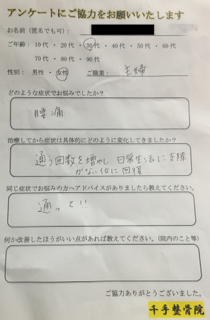 アンケートにご協力をお願いいたします
お名前(匿名でも可):
ご年齢:10代・20代・30代・40代・50代・60代
70代・80代・90代
性別: 男性・女性 ご職業: 主婦
どのような症状でお悩みでしたか?
腰痛
治療してから症状は具体的にどのように変化してきましたか?
通う回数を増やし 日常生活に支障
がない位に回復
同じ症状でお悩みの方へアドバイスがありましたら教えてください。
何か改善したほうがいい点があれば教えてください。(院内のこと等)
ご協力ありがとうございました。
千手整骨院